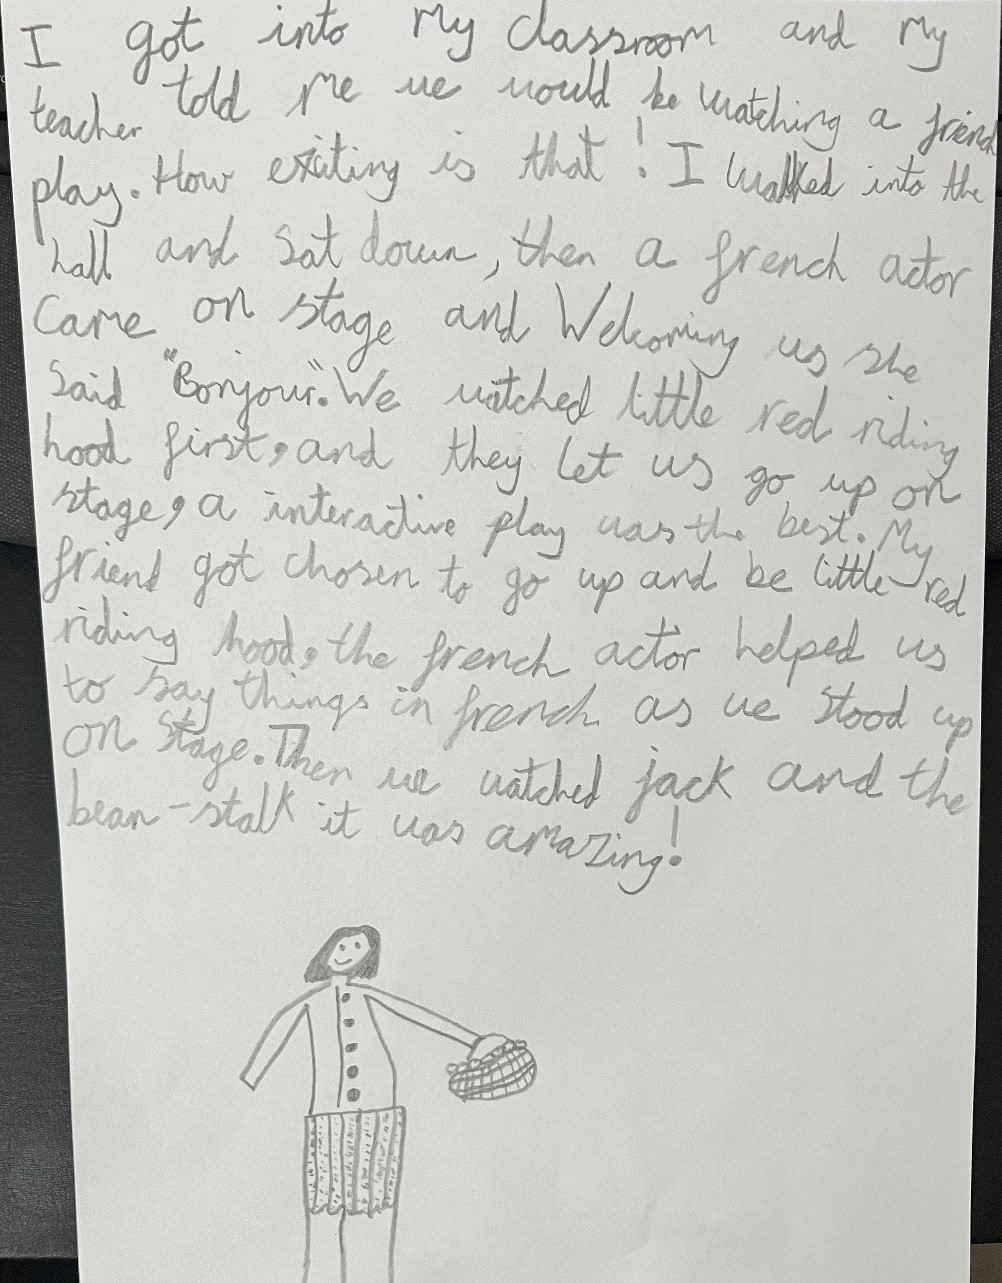 I got into My classroom and My
teacher told Me we would be watching a french
play. How exiting is that! I walked into the
hall and sat down, then a french actor
Came on stage and Welcoming us she
Said "Bonjour". We watched little red riding
hood first, and they let us go up on
stage, a interactive play was the best. My
friend got chosen to go up and be little red
riding hood, the french actor helped us
to say things in french as we stood up
on stage. Then we watched jack and the
bean-stalk it was amazing!